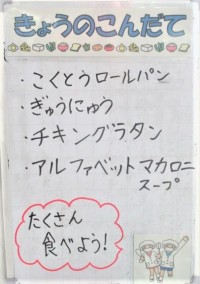 きょうのこんだて
・こくとうロールパン
・ぎゅうにゅう
・チキングラタン
・アルファベットマカロニ
スープ
たくさん
食べよう!